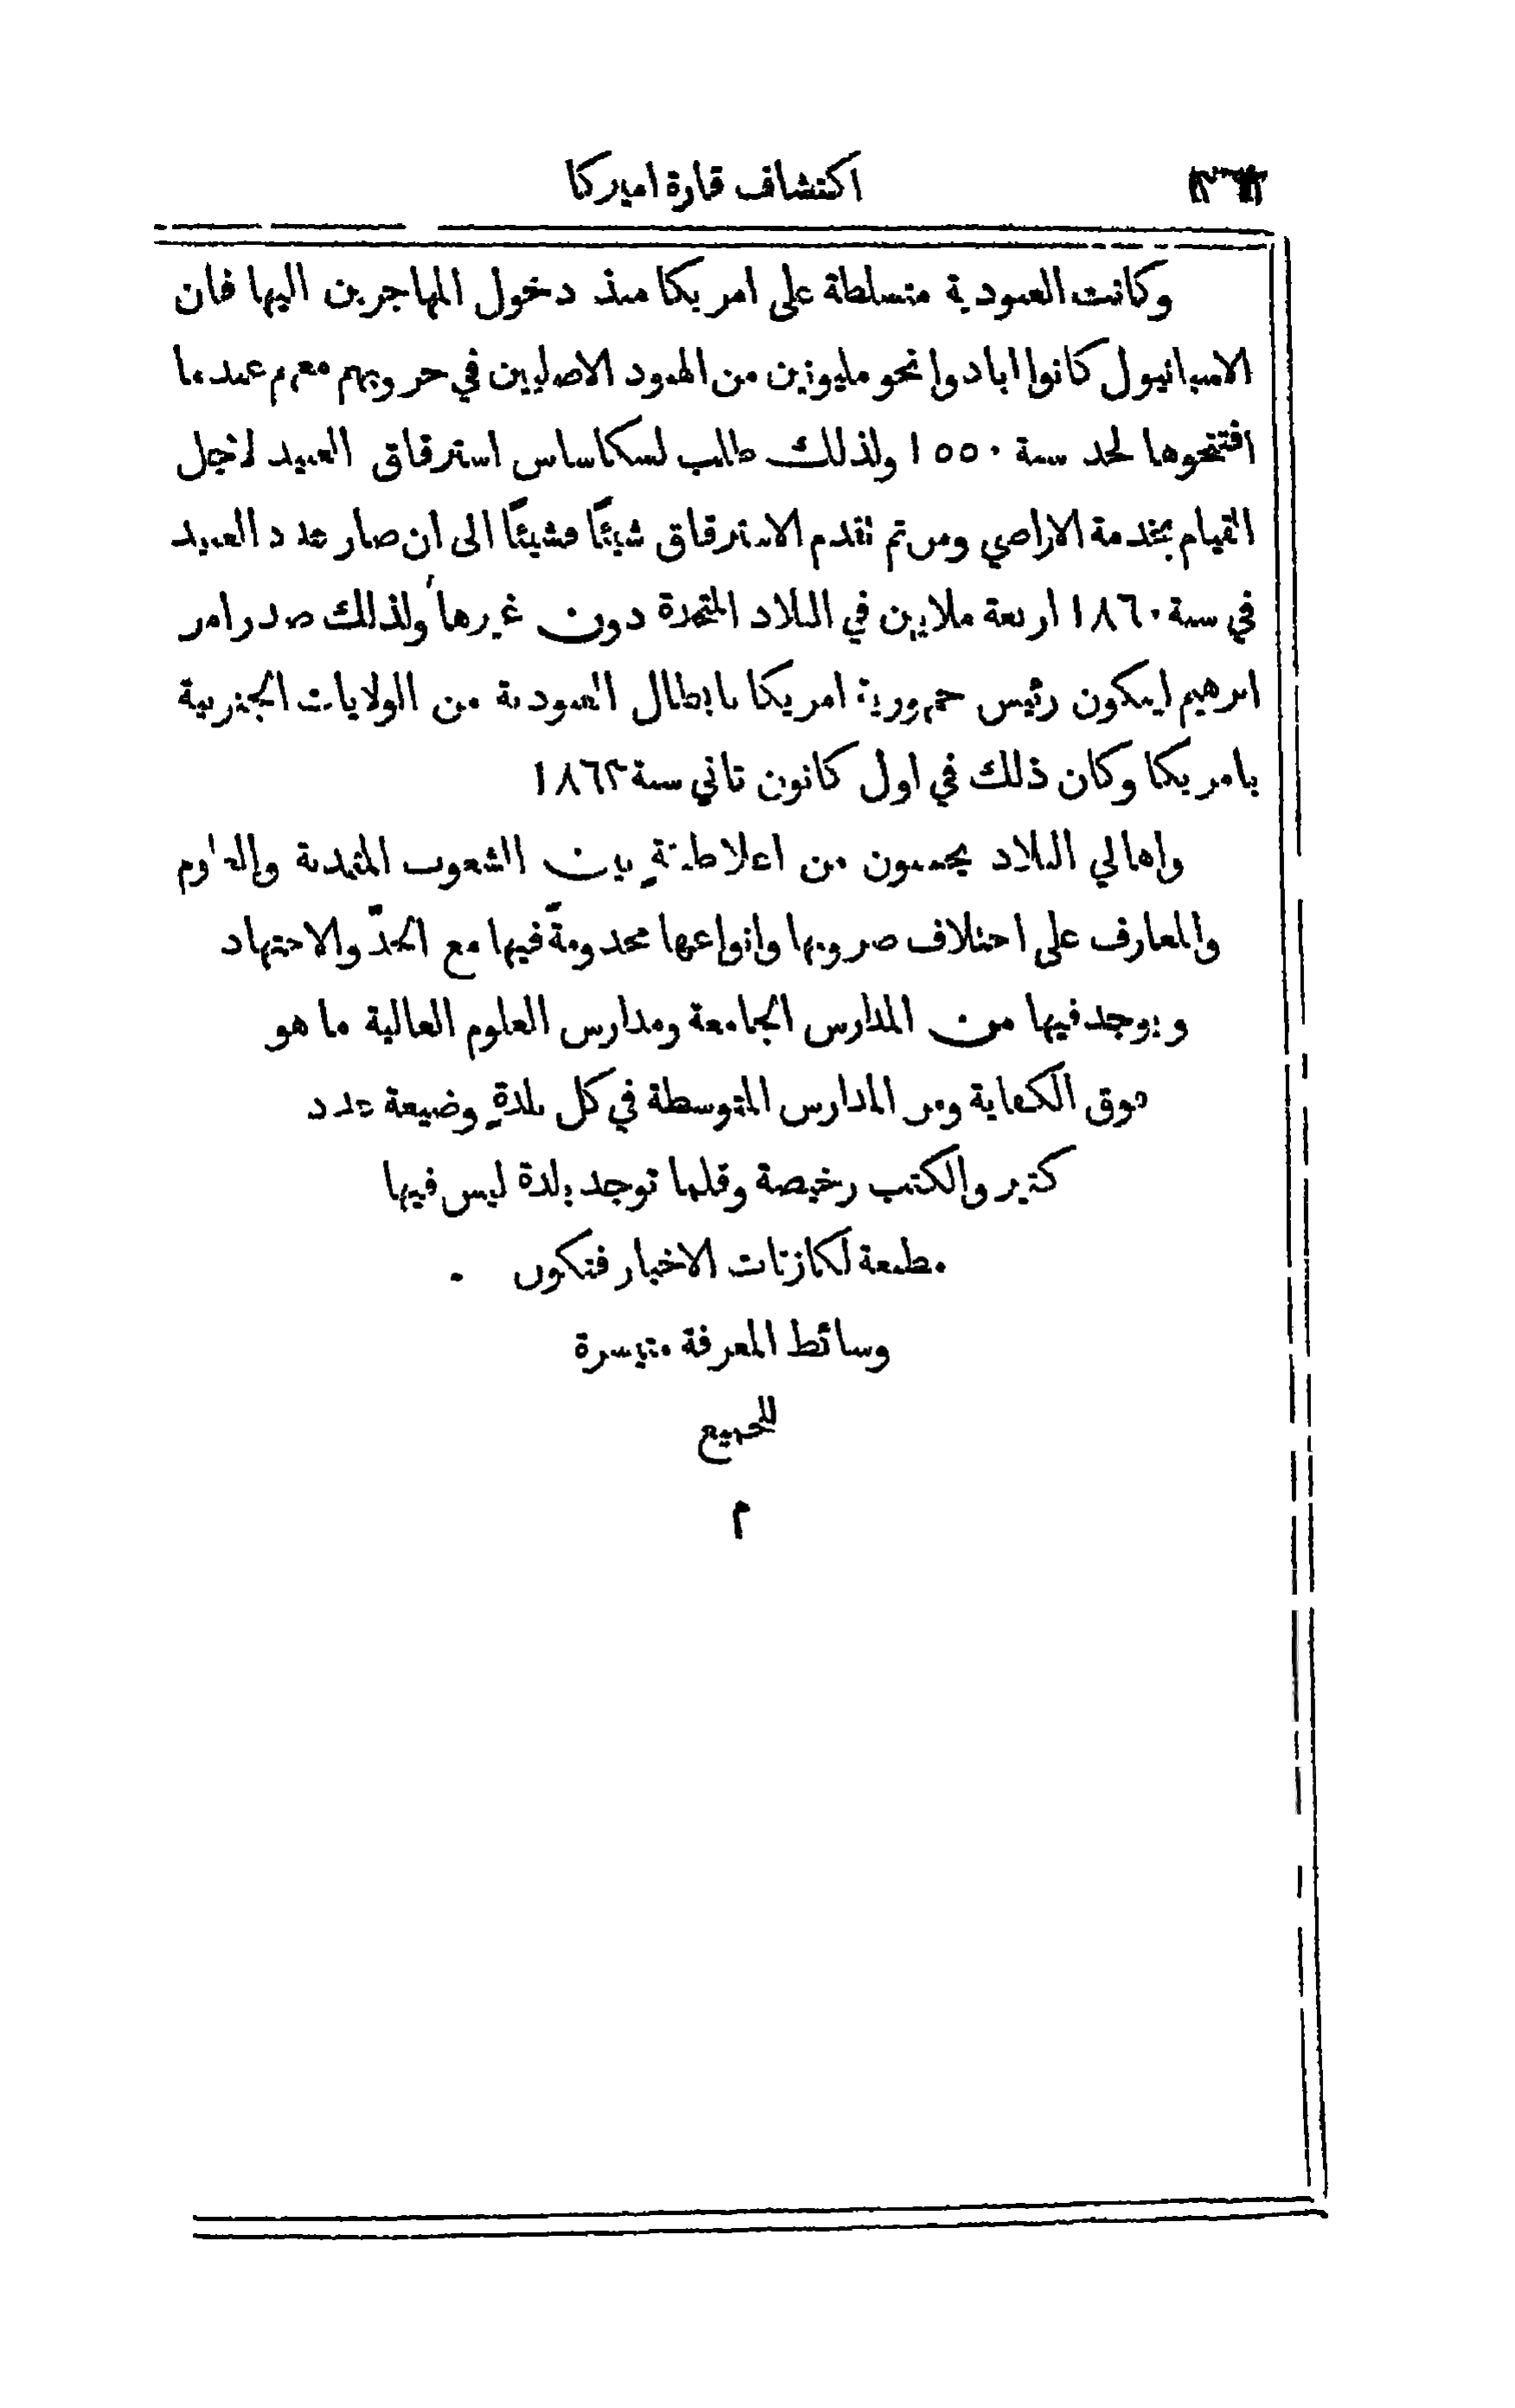 اكتشاف قارة اميركا
وكانت العبودية متسلطة على امريكا منذ دخول المهاجرين اليها فان
الاسبانيول كانوا ابادوا نحو مليونين من الهنود الاصليين في حروبهم معهم عندما
افتتحوها لحد سنة ١٥٥٠ ولذلك طلب لسكاساس استرقاق العبيد لاجل
القيام بخدمة الاراضي ومن ثم تقدم الاسترقاق شيئًا فشيئًا الى ان صار عدد العبيد
في سنة ١٨٦٠ اربعة ملايين في البلاد المتحدة دون غيرها ولذلك صدر امر
ابرهيم لينكون رئيس جمهورية امريكا بابطال العبودية من الولايات الجنوبية
بامريكا وكان ذلك في اول كانون ثاني سنة ١٨٦٣
واهالي البلاد يحسبون من اعلا طبقةٍ بين الشعوب المتمدنة والعلوم
والمعارف على اختلاف ضروبها وانواعها مخدومةً فيها مع الجدّ والاجتهاد
ويوجد فيها من المدارس الجامعة ومدارس العلوم العالية ما هو
فوق الكفاية ومن المدارس المتوسطة في كل بلدةٍ وضيعة عدد
كثير والكتب رخيصة وقلما توجد بلدة ليس فيها
مطبعة لكازتات الاخبار فتكون
وسائط المعرفة متيسرة
للجميع
م